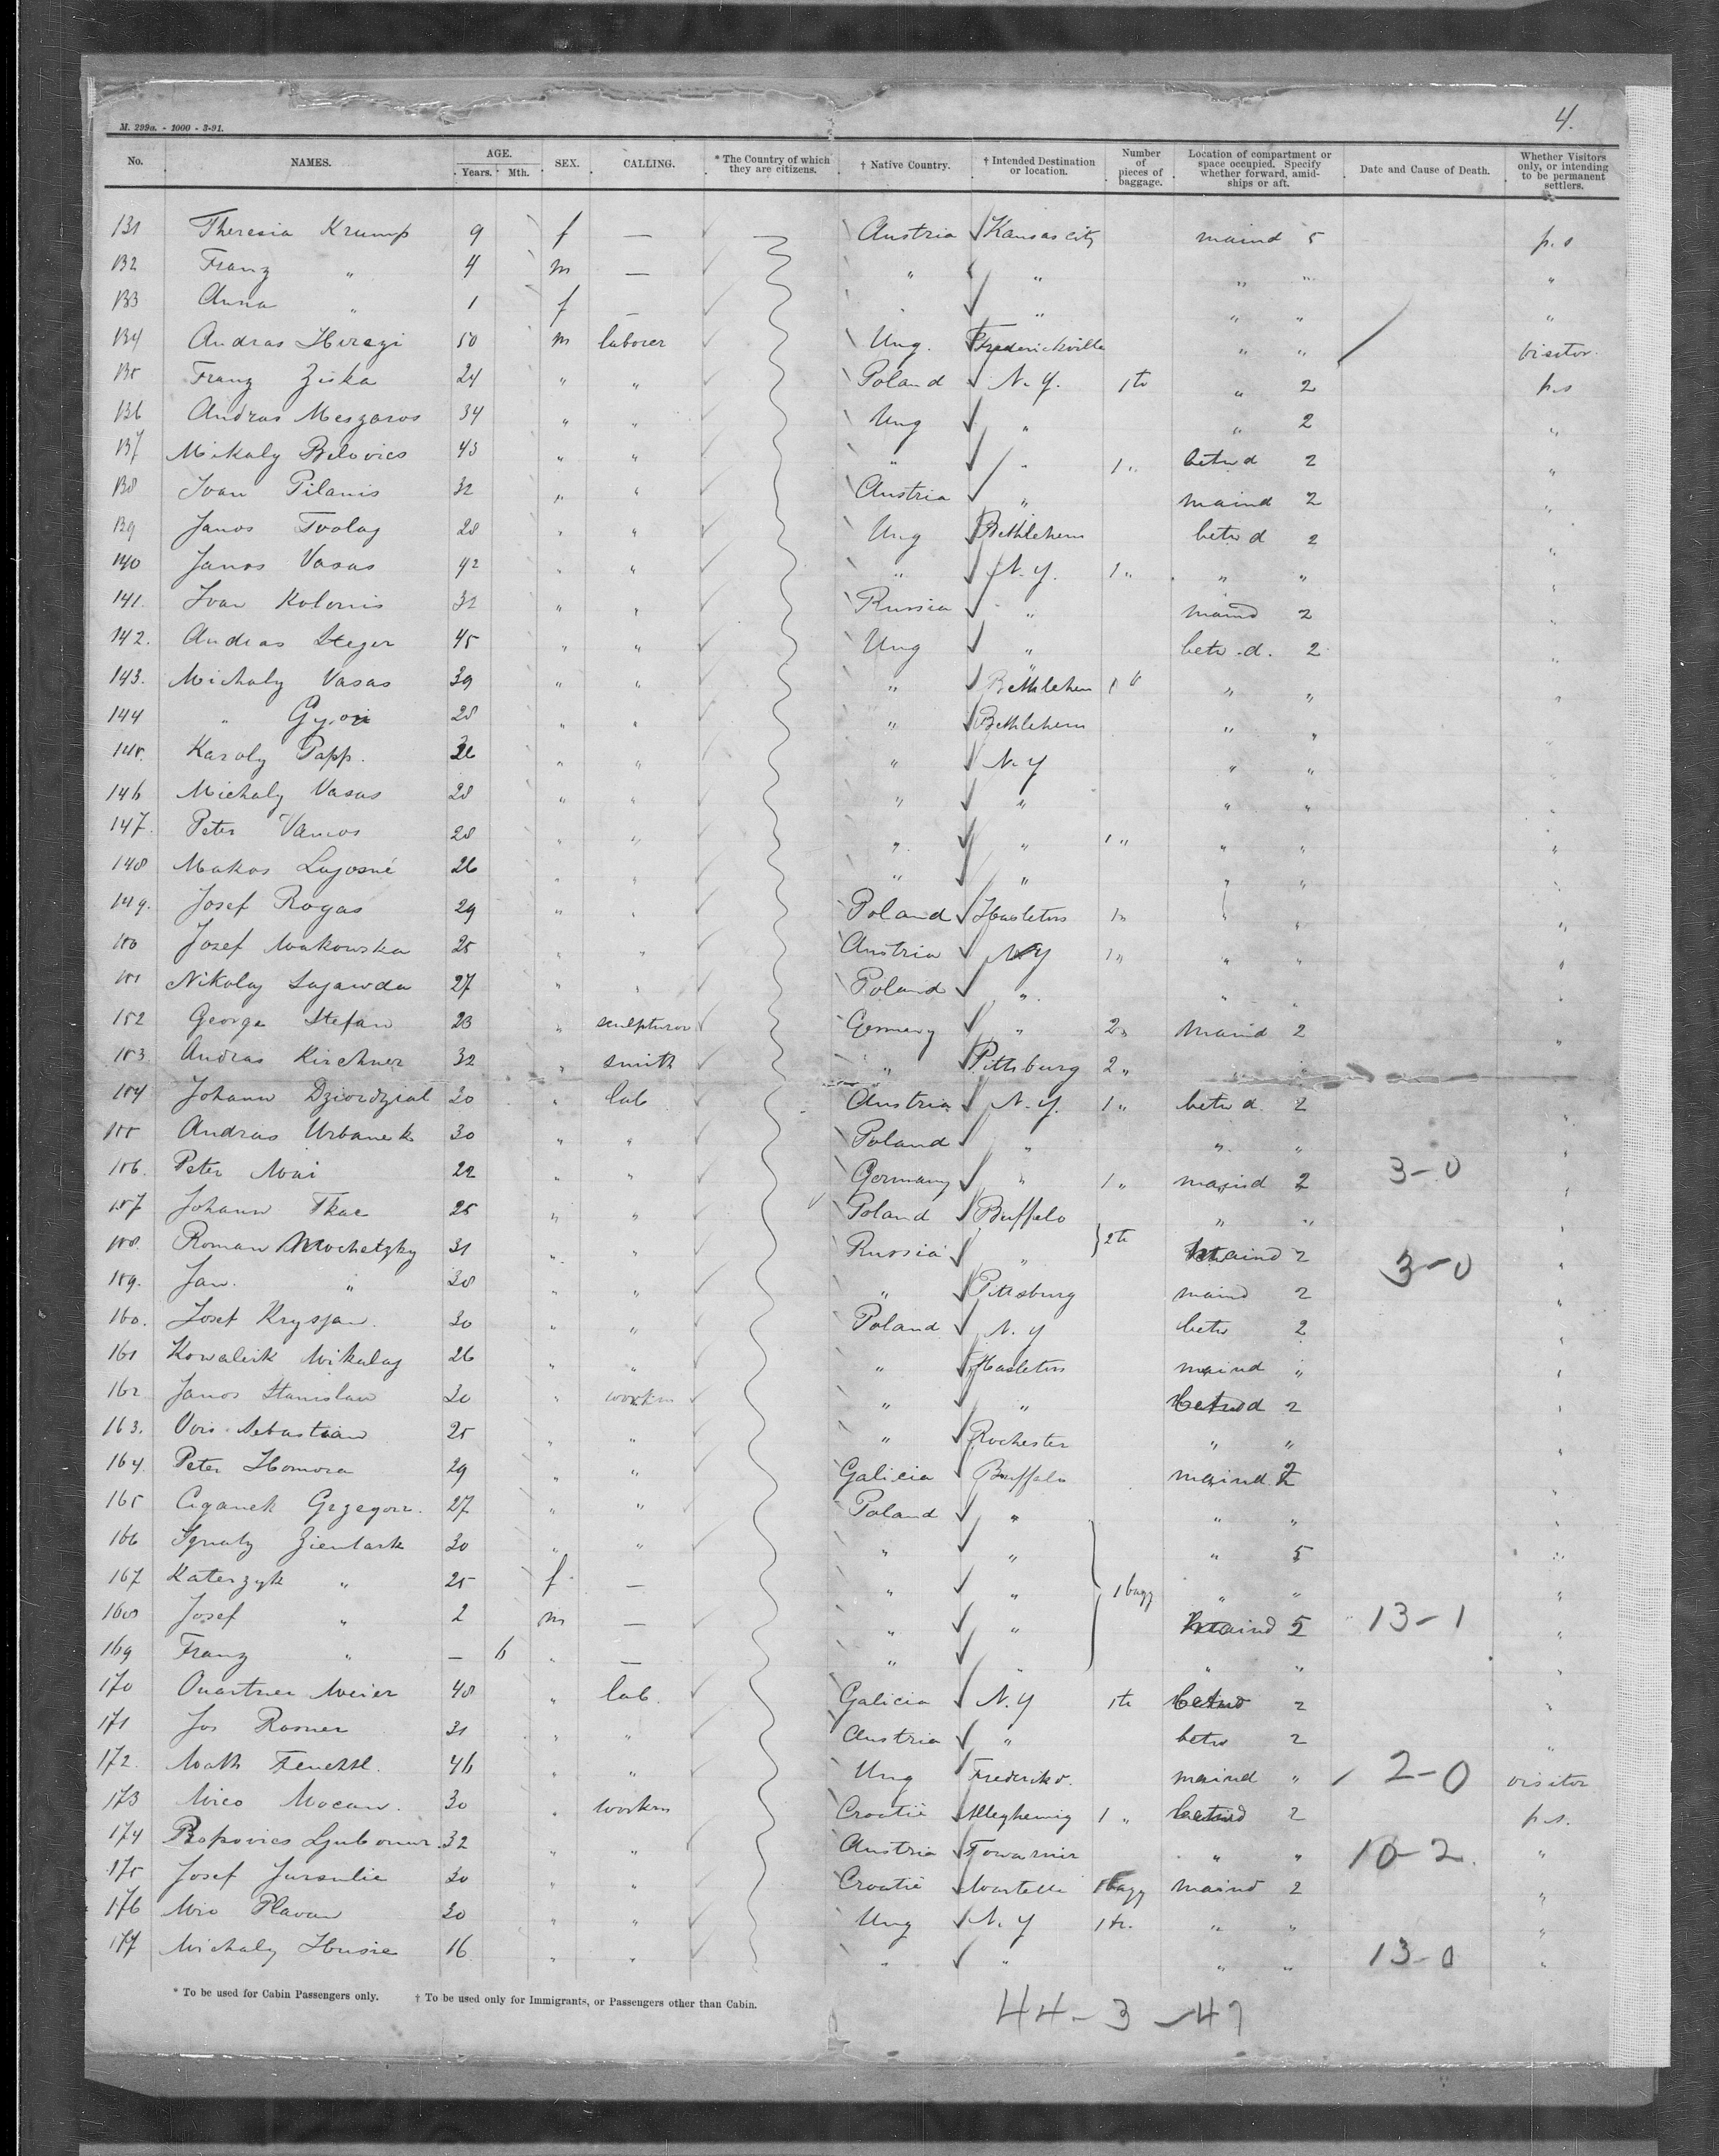 4.
M. 299a. - 1000 - 3-91.
No. NAMES. AGE. Years. Mth. SEX. CALLING. * The Country of which they are citizens. † Native Country. † Intended Destination or location. Number of pieces of baggage. Location of compartment or space occupied. Specify whether forward, amidships or aft. Date and Cause of Death. Whether Visitors only, or intending to be permanent settlers.
131 Theresia Krump 9 f — — Austria Kansas city maind 5 p.s
132 Franz " 4 m — " " " " "
133 Anna " 1 f — " " " " "
134 Andras 50 m laborer Ung. Frederickville " " visitor.
135 Franz Ziska 24 " " Poland N.Y. 1 tr " 2 p.s
136 Andras Meszaros 34 " " Ung " " 2 "
137 Mihaly Belovics 43 " " " " 1 " betwd 2 "
138 Ivan Pilanis 32 " " Austria " maind 2 "
139 Janos 28 " " Ung Bethlehem betw d 2 "
140 Janos Vasas 42 " " " N.Y. 1 " " " "
141. Ivan Kolonis 32 " " Russia " maind 2 "
142. Andras Steger 45 " " Ung " betw.d. 2 "
143. Michaly Vasas 39 " " " Bethlehem 1 " " " "
144 " 28 " " " Bethlehem " " "
145. Karoly Papp. " " " N.Y " " "
146 Michaly Vasas 28 " " " " " " "
147. Peter Vamos 28 " " " " 1 " " " "
148 Makos Lajosné 26 " " " " " " "
149. Josef Rogas 29 " " Poland Hasleton 1 " " " "
150 Jozef Makowska 25 " " Austria NY 1 " " " "
151 Nikolaj 27 " " Poland " " " "
152 George Stefan 23 " sculpturor Germany " 2 " Maind 2 "
153. Andras Kirchner 32 " smith " Pittsburg 2 " " "
154 Johann Dziordzial 30 " lab Austria N.Y. 1 " betw d. 2 "
155 Andras Urbanek 30 " " Poland " " " "
156. Peter Mai 22 " " Germany " 1 " maind 2 3-0 "
157 Johann Tkac 25 " " Poland Buffalo " " "
158. Roman Mrochetzky 31 " " Russia " 2 tr maind 2 3-0 "
159. Jan. " 38 " " " Pittsburg maind 2 "
160. Josef Krysjan. 30 " " Poland N.Y betw 2 "
161 Kowalisk Mikulay 26 " " " Hasleton maind " "
162 Janos Stanislaw 30 " workm " " betwd 2 "
163. Sebastian 25 " " " Rochester " " "
164. Peter Homora 29 " " Galicia Buffalo maind 2 "
165 Ciganek Grzegorz. 27 " " Poland " " " "
166 Ignatz Zientark 30 " " " " " 5 "
167 Katerzyk " 25 f. — " " 1 bagg " " "
168 Josef " 2 m — " " maind 5 13-1 "
169 Franz " — 6 " — " " " " "
170 Meier 48 " lab. Galicia N.Y 1 tr betwd 2 "
171 Jos Rosner 31 " " Austria " betw 2 "
172. Math 46 " " Ung Frederikv. maind " 2-0 visitor
173 Mico Mocan. 30 " workm Croatie Alleghenig 1 " betwd 2 p.s.
174 Popovics Ljubomir. 32 " " Austria " " 10-2. "
175 Josef Jursulic 30 " " Croatie 1 bagg maind 2 "
176 Plavan 30 " " Ung N.Y 1 tr. " " "
177 Michaly 16 " " " " " " 13-0 "
* To be used for Cabin Passengers only. † To be used only for Immigrants, or Passengers other than Cabin.
44-3-47